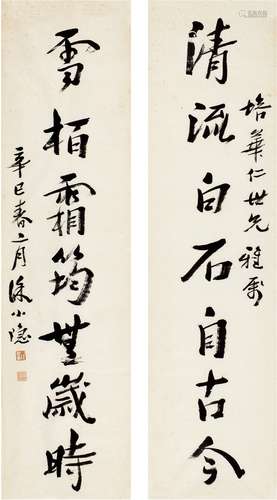 清流白石自古今
培華仁世兄雅属
雪柏霜筠無歲時
辛巳春二月徐小隱